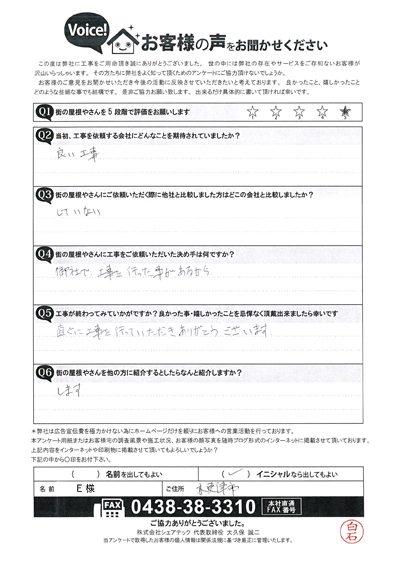 Voice!
お客様の声をお聞かせください
この度は弊社に工事をご用命頂き誠にありがとうございました。世の中には弊社の存在やサービスをご存知ないお客様が
沢山いらっしゃいます。その方たちに弊社をよく知って頂くためのアンケートにご協力頂けないでしょうか。
お客様のご意見をお聞かせいただき今後の活動に反映させていただきたいと考えております。良かったこと、嬉しかったこと
どのような些細な事でも結構です。是非ご協力お願い致します。出来るだけ具体的に書いて頂ければ幸いです。
Q1 街の屋根やさんを5段階で評価をお願いします ☆ ☆ ☆ ☆ ★
Q2 当初、工事を依頼する会社にどんなことを期待されていましたか?
良い工事
Q3 街の屋根やさんにご依頼いただく際に他社と比較しました方はどこの会社と比較しましたか?
していない
Q4 街の屋根やさんに工事をご依頼いただいた決め手は何ですか?
御社で工事を行った事があるから
Q5 工事が終わってみていかがですか?良かった事・嬉しかったことを忌憚なく頂戴出来ましたら幸いです
直ぐに工事を行っていただきありがとうございます。
Q6 街の屋根やさんを他の方に紹介するとしたらなんと紹介しますか?
します
*弊社は広告宣伝費を極力かけない為にホームページだけを頼りにお客様への営業活動を行っております。
本アンケート用紙またはお客様宅の調査風景や施工状況、お客様の顔写真を随時ブログ形式のインターネットに掲載させて頂いております。
上記内容をインターネットや印刷物に掲載させて頂いてもよろしいでしょうか?
下記の中から〇印をお付け下さい。
( ) 名前を出してもよい (✓) イニシャルなら出してもよい
名前 E 様 ご住所 木更津市
FAX 0438-38-3310 本社直通 FAX番号
ご協力ありがとうございました。
株式会社シェアテック 代表取締役 大久保 誠二
当アンケートで取得したお客様の個人情報は関係法規に基づき厳正に管理いたします。
白石